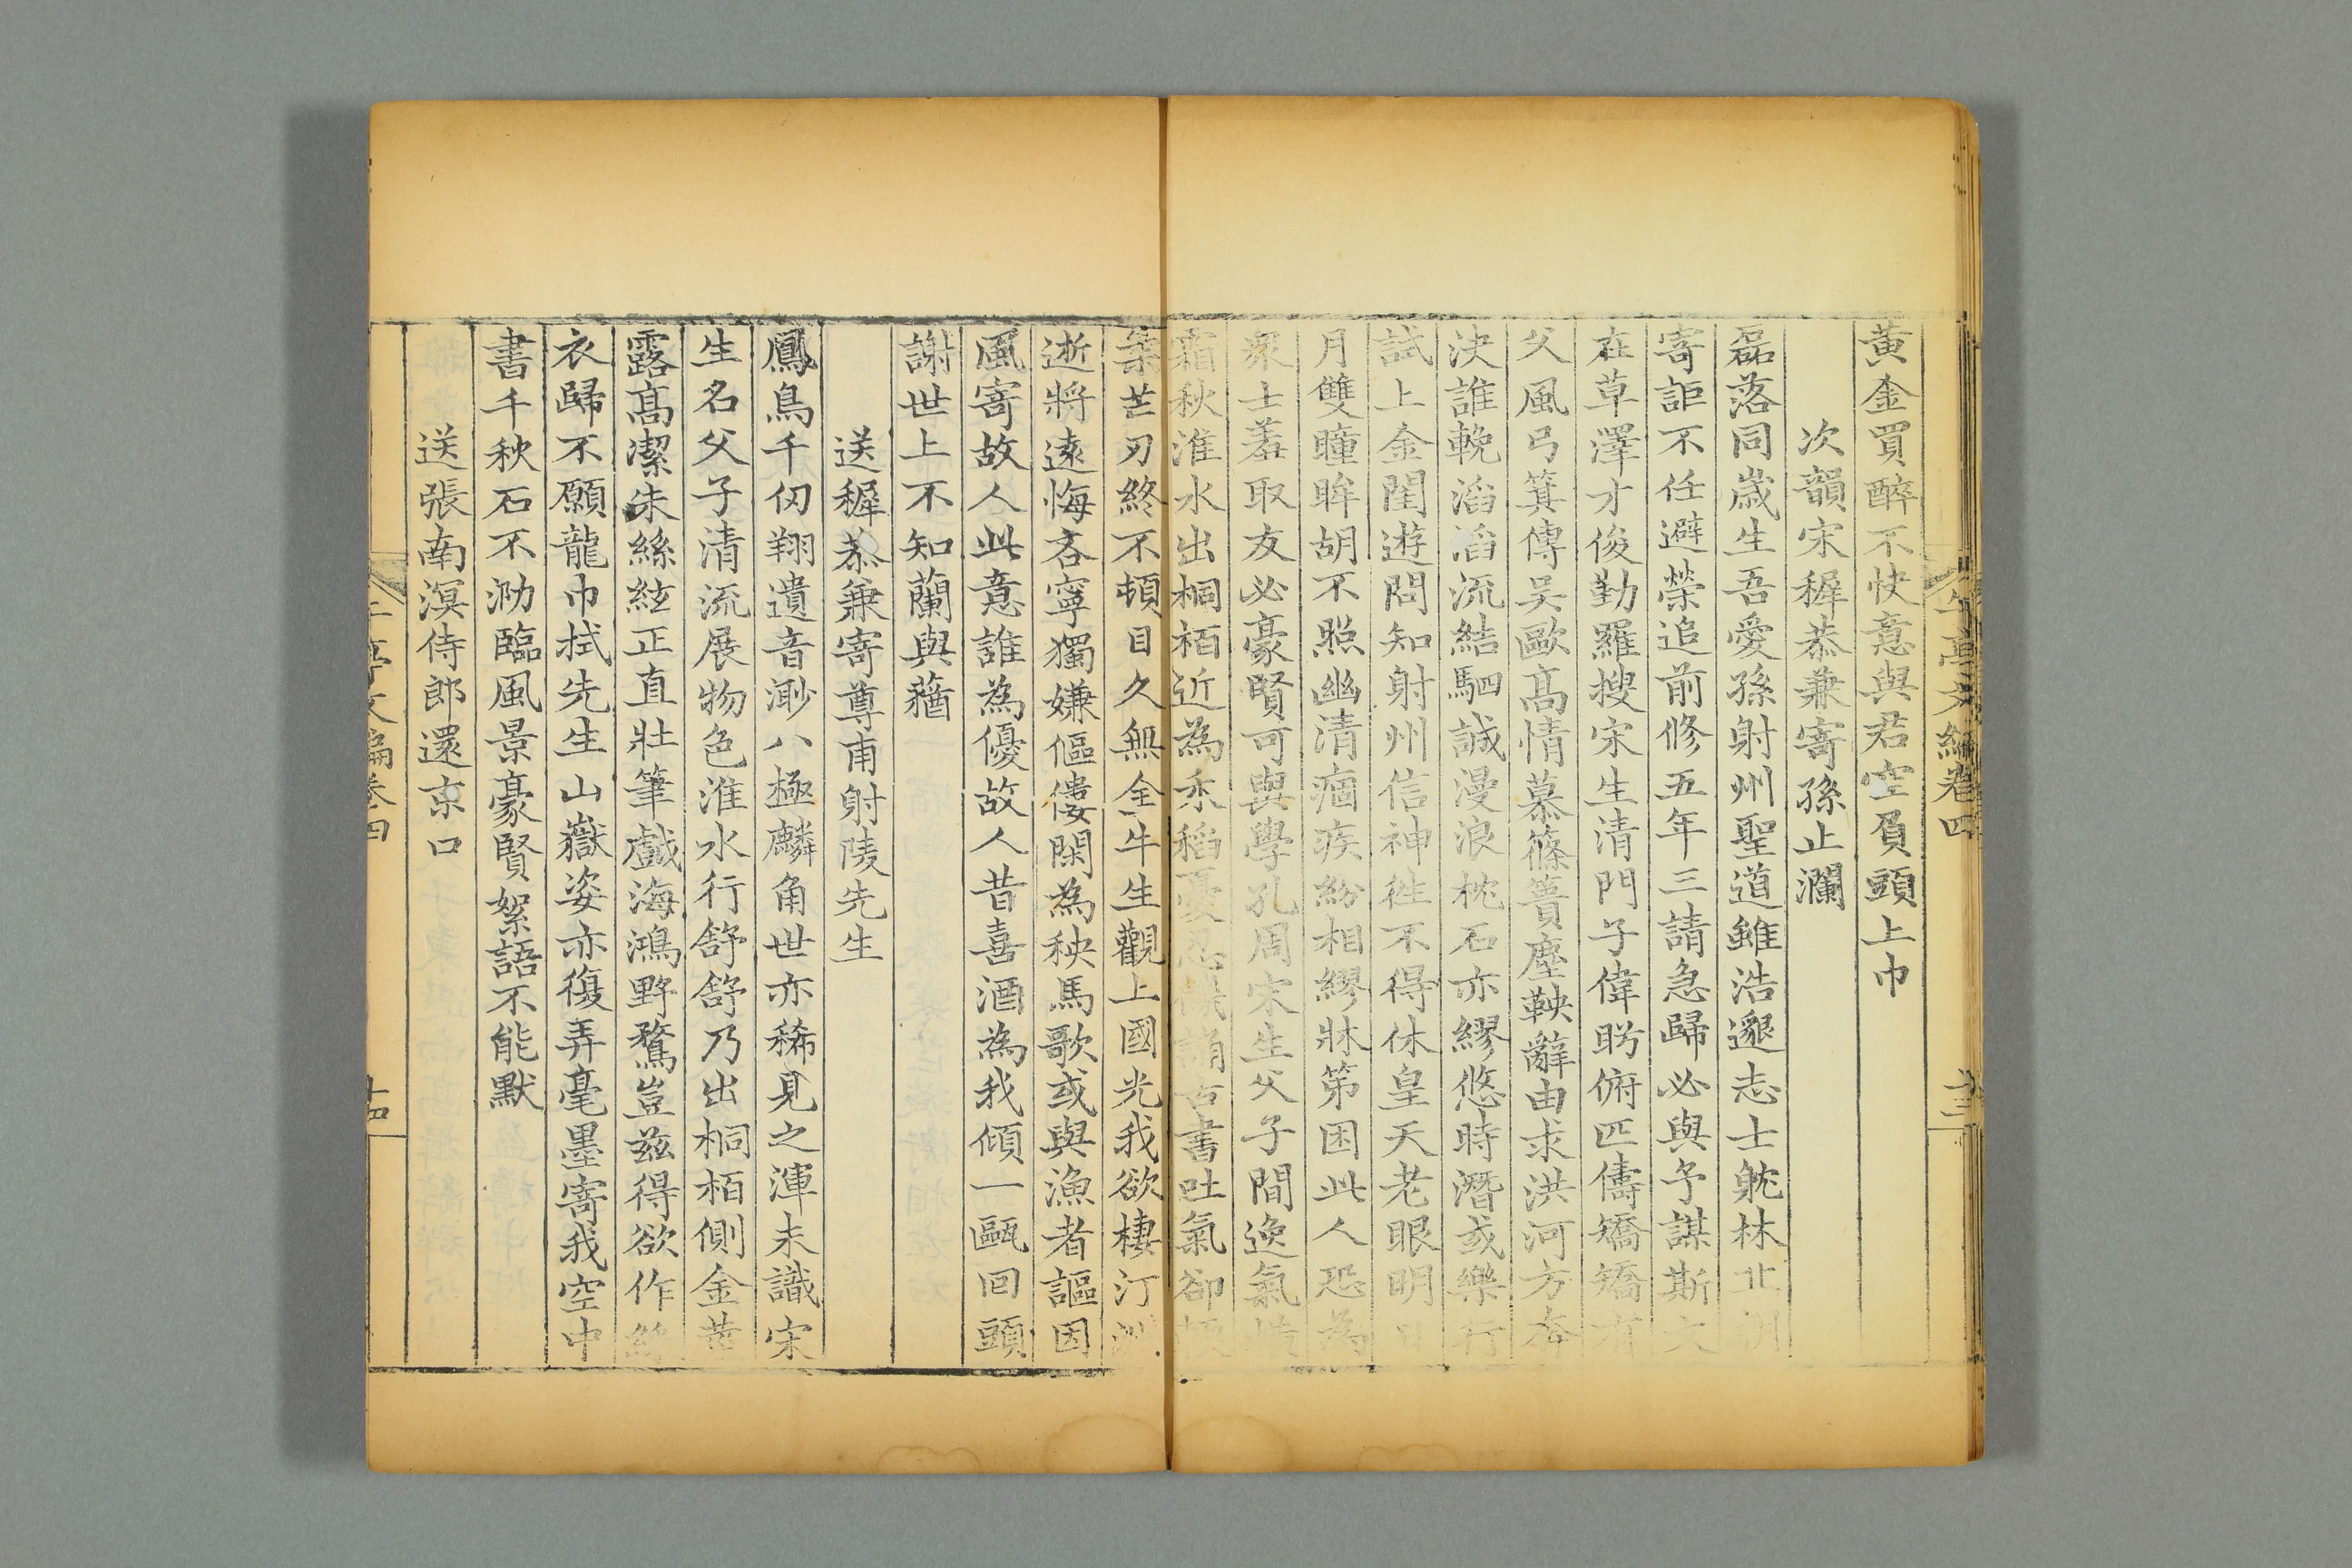 黃金買醉不快意與君空負頭上巾
次韻宋穉恭兼寄孫止瀾
磊落同歲生吾愛孫射州聖道雖浩邈志士躭林
寄詎不任避榮追前修五年三請急歸必與予謀斯
在草澤才俊勤羅搜宋生清門子偉眄俯匹儔矯矯
父風弓箕傳吴歐高情慕篠簣塵鞅辭由求洪河方
決誰輓滔滔流結駟誠漫浪枕石亦繆悠時潛或樂行
試上金閨遊問知射州信神徃不得休皇天老眼明
月雙瞳眸胡不照幽清痼疾紛相繆牀第困此人恐為
衆士羞取友必豪賢可與學孔周宋生父子間逸氣
霜秋淮水出桐栢近為禾稻憂古書吐氣卻
芒刃終不頓目久無全牛生觀上國光我欲棲汀
逝將遠悔吝寧獨嫌傴僂閑為秧馬歌或與漁者謳因
風寄故人此意誰為優故人昔喜酒為我傾一甌回頭
謝世上不知蘭與蕕
送穉恭兼寄尊甫射陵先生
鳳鳥千仞翔遺音渺八極麟角世亦稀見之渾未識宋
生名父子清流展物色淮水行舒舒乃出桐栢側金莖
露高潔朱絲絃正直壯筆戲海鴻野鶩豈兹得欲作
衣歸不願龍巾拭先生山嶽姿亦復弄毫墨寄我空中
書千秋石不泐臨風景豪賢絮語不能默
送張南溟侍郎還京口
文編卷四
十三
文編卷四
十四